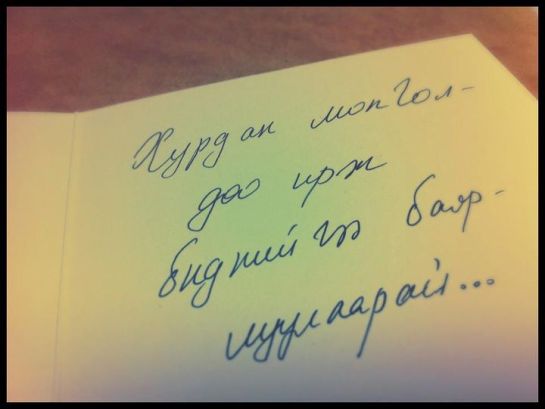 Хурдан монгол-
доо ирж
биднийгээ баяр-
луулаарай...